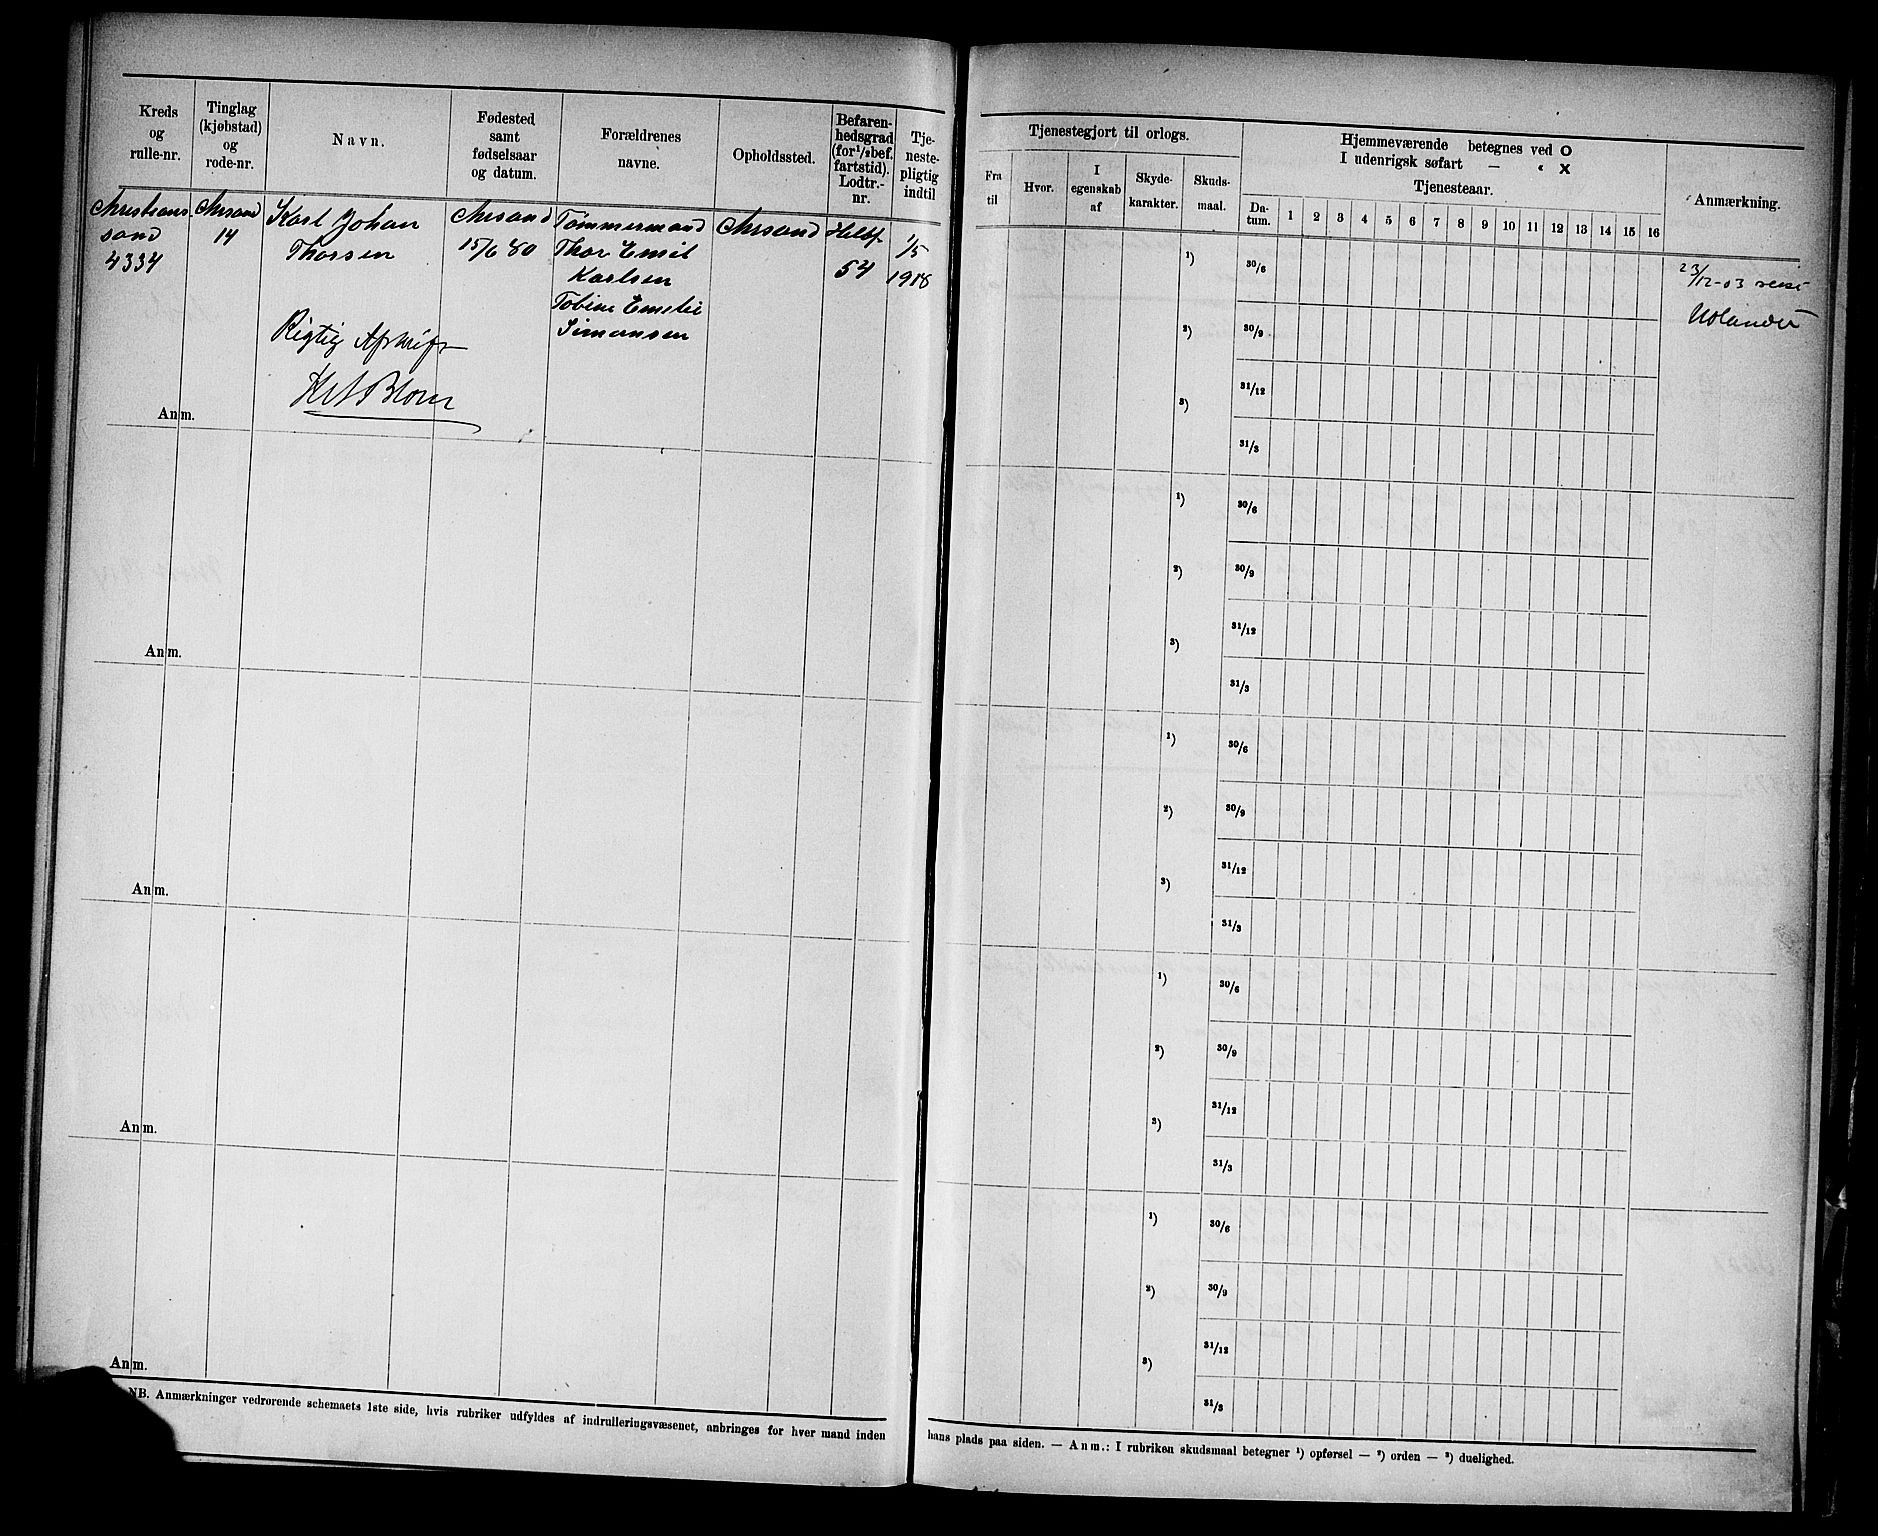 Kreds
og
rulle-nr.
Tinglag
(kjøbstad)
og
rode-nr.
Navn.
Fødested
samt
fødselsaar
og datum.
Forældrenes
navne.
Opholdssted.
Befaren-
hedsgrad
(for 1/2 bef.
fartstid).
Lodtr.-
nr.
Tje-
neste-
pligtig
indtil
Christians
sand
4334
Chrsand
14
Karl Johan
Thorsen
Chrsand
15/6 80
Tømmermand
Thor Emil
Karlsen
Tobine Emelie
Simonsen
Chrsand
Helbf.
54
1/5
1918
Rigtig Afskrift
Anm.
Anm.
Anm.
Anm.
Anm.
NB. Anmærkninger vedrørende schemaets 1ste side, hvis rubriker udfyldes af indrulleringsvæsenet, anbringes for hver mand inden
Tjenestegjort til orlogs.
Fra
til
Hvor.
I
egenskab
af
Skyde-
karakter.
Skuds-
maal.
Hjemmeværende betegnes ved O
I udenrigsk søfart — „ X
Tjenesteaar.
Da-
tum.
1 2 3 4 5 6 7 8 9 10 11 12 13 14 15 16
Anmærkning.
1) 30/6
2) 30/9
31/12
3)
31/3
23/12-03 reist
Udlandet
1) 30/6
2) 30/9
31/12
3)
31/3
1) 30/6
2) 30/9
31/12
3)
31/3
1) 30/6
2) 30/9
31/12
3)
31/3
1) 30/6
2) 30/9
31/12
3)
31/3
hans plads paa siden. — Anm.: I rubriken skudsmaal betegner 1) opførsel — 2) orden — 3) duelighed.